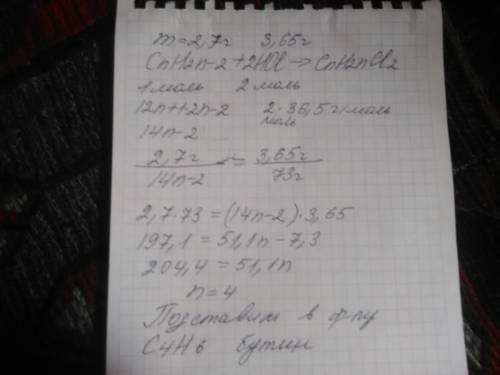 m=2,7г 3,65г
CnH2n-2+2HCl→CnH2nCl2
1 моль 2 моль
12n+2n-2 2·36,5г/моль
14n-2 моль
2,7г = 3,65г
14n-2 73г
2,7·73=(14n-2)·3,65
197,1=51,1n-7,3
204,4=51,1n
n=4
Подставим в ф-лу
C4H6 бутин